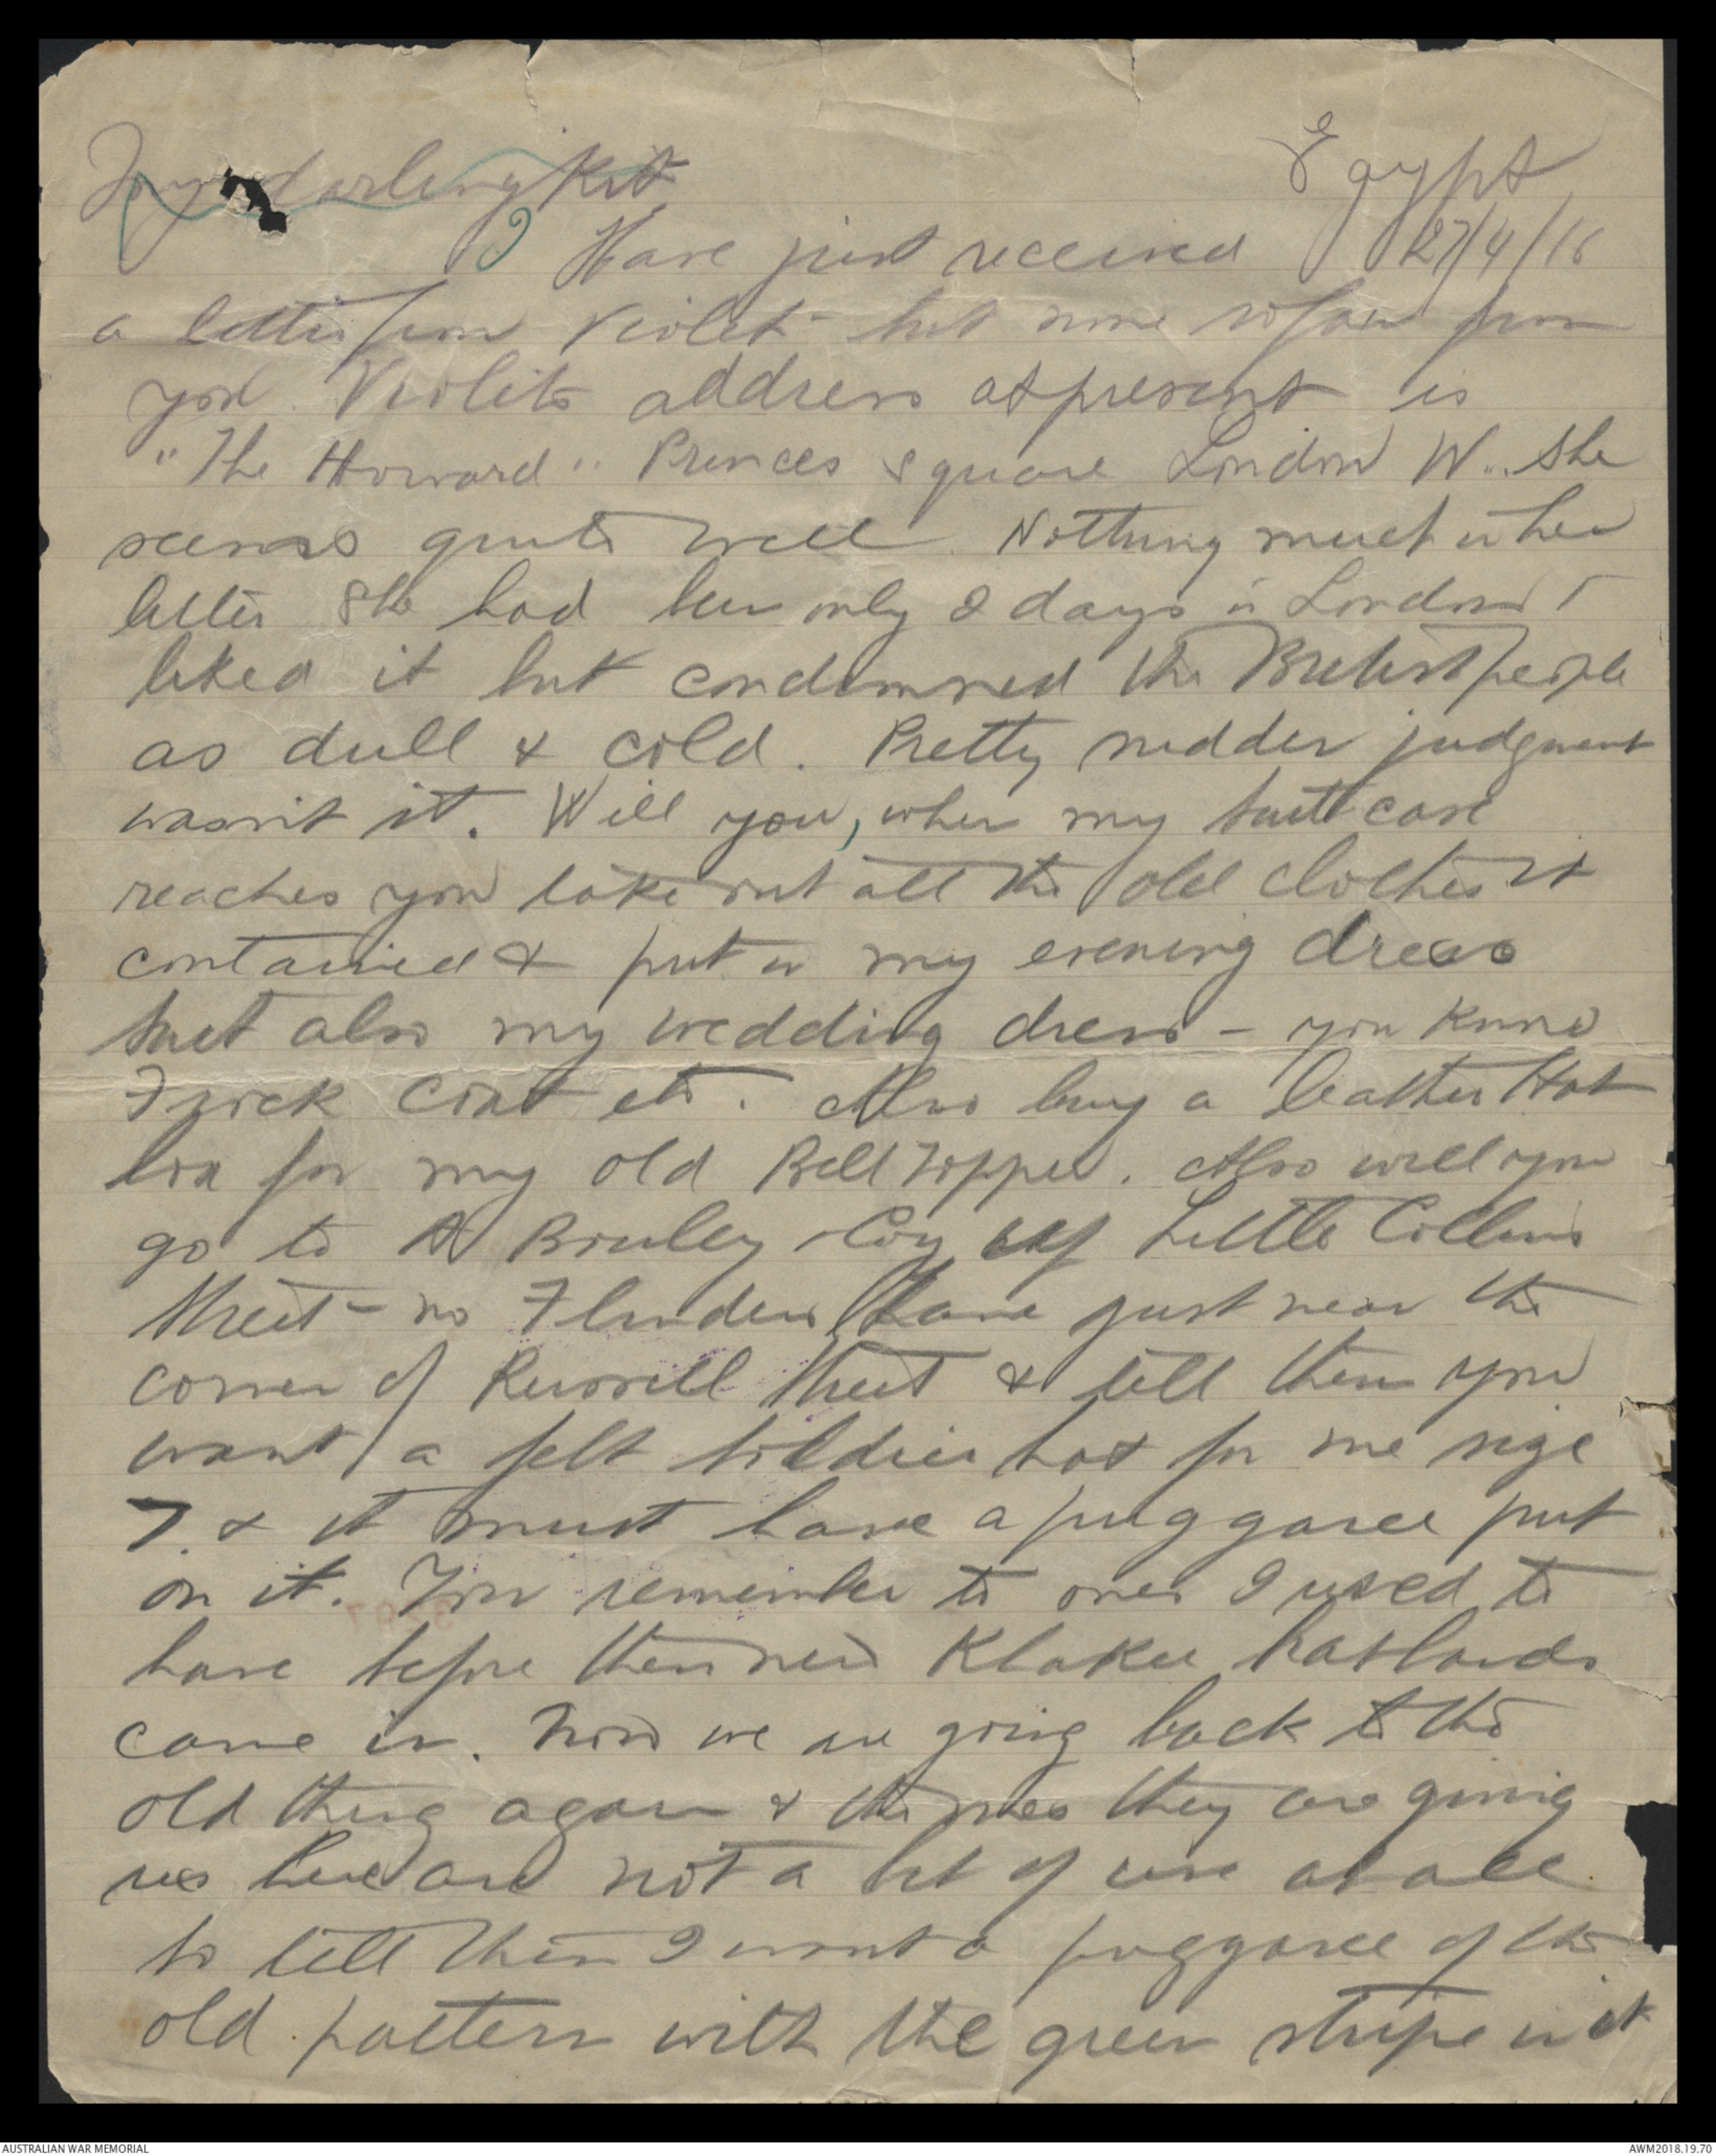 My darling Kit
Egypt
27/4/16
Have just received
a letter from Violet but none so far from
you. Violets address at present is
"The Howard" Princes Square London W.. She
seems quite well. Nothing much in her
letter She had been only 2 days in London &
liked it but condemned the British people
as dull & cold. Pretty sudden judgment
wasn't it. Will you, when my suit case
reaches you take out all the old clothes it
contained & put in my evening dress
suit also my wedding dress - you know
Frock Coat etc. Also buy a leather Hat
box for my old Bell Topper. Also will you
go to & Coy of Little Collins
Street - no Flinders Lane just near the
corner of Russell Street & tell them you
want a felt soldier hat for me size
7. & it must have a puggaree put
on it. You remember the ones I used to
have before the new Khakee hatbands
came in. Now we are going back to the
old thing again & the ones they are giving
us here are not a bit of use at all
so tell them I want a puggaree of the
old pattern with the green stripe in it
AUSTRALIAN WAR MEMORIAL
AWM2018.19.70